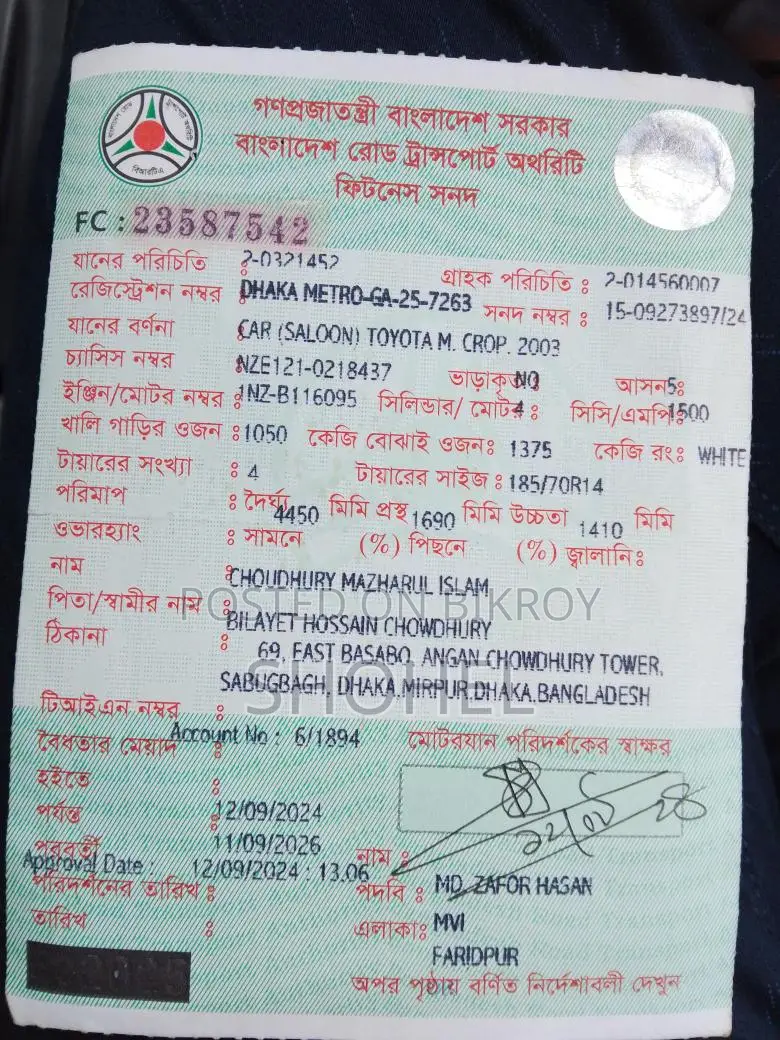 গণপ্রজাতন্ত্রী বাংলাদেশ সরকার
বাংলাদেশ রোড ট্রান্সপোর্ট অথরিটি
ফিটনেস সনদ
বিআরটিএ
FC : 23587542
যানের পরিচিতি : 2-0321452 গ্রাহক পরিচিতি : 2-014560007
রেজিস্ট্রেশন নম্বর : DHAKA METRO-GA-25-7263 সনদ নম্বর : 15-09273897/24
যানের বর্ণনা : CAR (SALOON) TOYOTA M. CROP. 2003
চ্যাসিস নম্বর : NZE121-0218437 ভাড়াকৃত NO আসন 5:
ইঞ্জিন/মোটর নম্বর : 1NZ-B116095 সিলিন্ডার/ মোটর 4 : সিসি/এমপি: 1500
খালি গাড়ির ওজন : 1050 কেজি বোঝাই ওজন: 1375 কেজি রং: WHITE
টায়ারের সংখ্যা : 4 টায়ারের সাইজ : 185/70R14
পরিমাপ : দৈর্ঘ্য 4450 মিমি প্রস্থ 1690 মিমি উচ্চতা 1410 মিমি
ওভারহ্যাং : সামনে (%) পিছনে (%) জ্বালানি:
নাম : CHOUDHURY MAZHARUL ISLAM
পিতা/স্বামীর নাম : BILAYET HOSSAIN CHOWDHURY
POSTED ON BIKROY
ঠিকানা : 69, EAST BASABO, ANGAN CHOWDHURY TOWER,
SABUGBAGH, DHAKA,MIRPUR,DHAKA,BANGLADESH
SHOHEL
টিআইএন নম্বর :
বৈধতার মেয়াদ : Account No : 6/1894 মোটরযান পরিদর্শকের স্বাক্ষর
হইতে : 12/09/2024
পর্যন্ত : 11/09/2026
পরবর্তী
Approval Date : 12/09/2024 : 13.06 নাম : MD. ZAFOR HASAN
পরিদর্শনের তারিখ : পদবি : MVI
তারিখ : এলাকা: FARIDPUR
অপর পৃষ্ঠায় বর্ণিত নির্দেশাবলী দেখুন